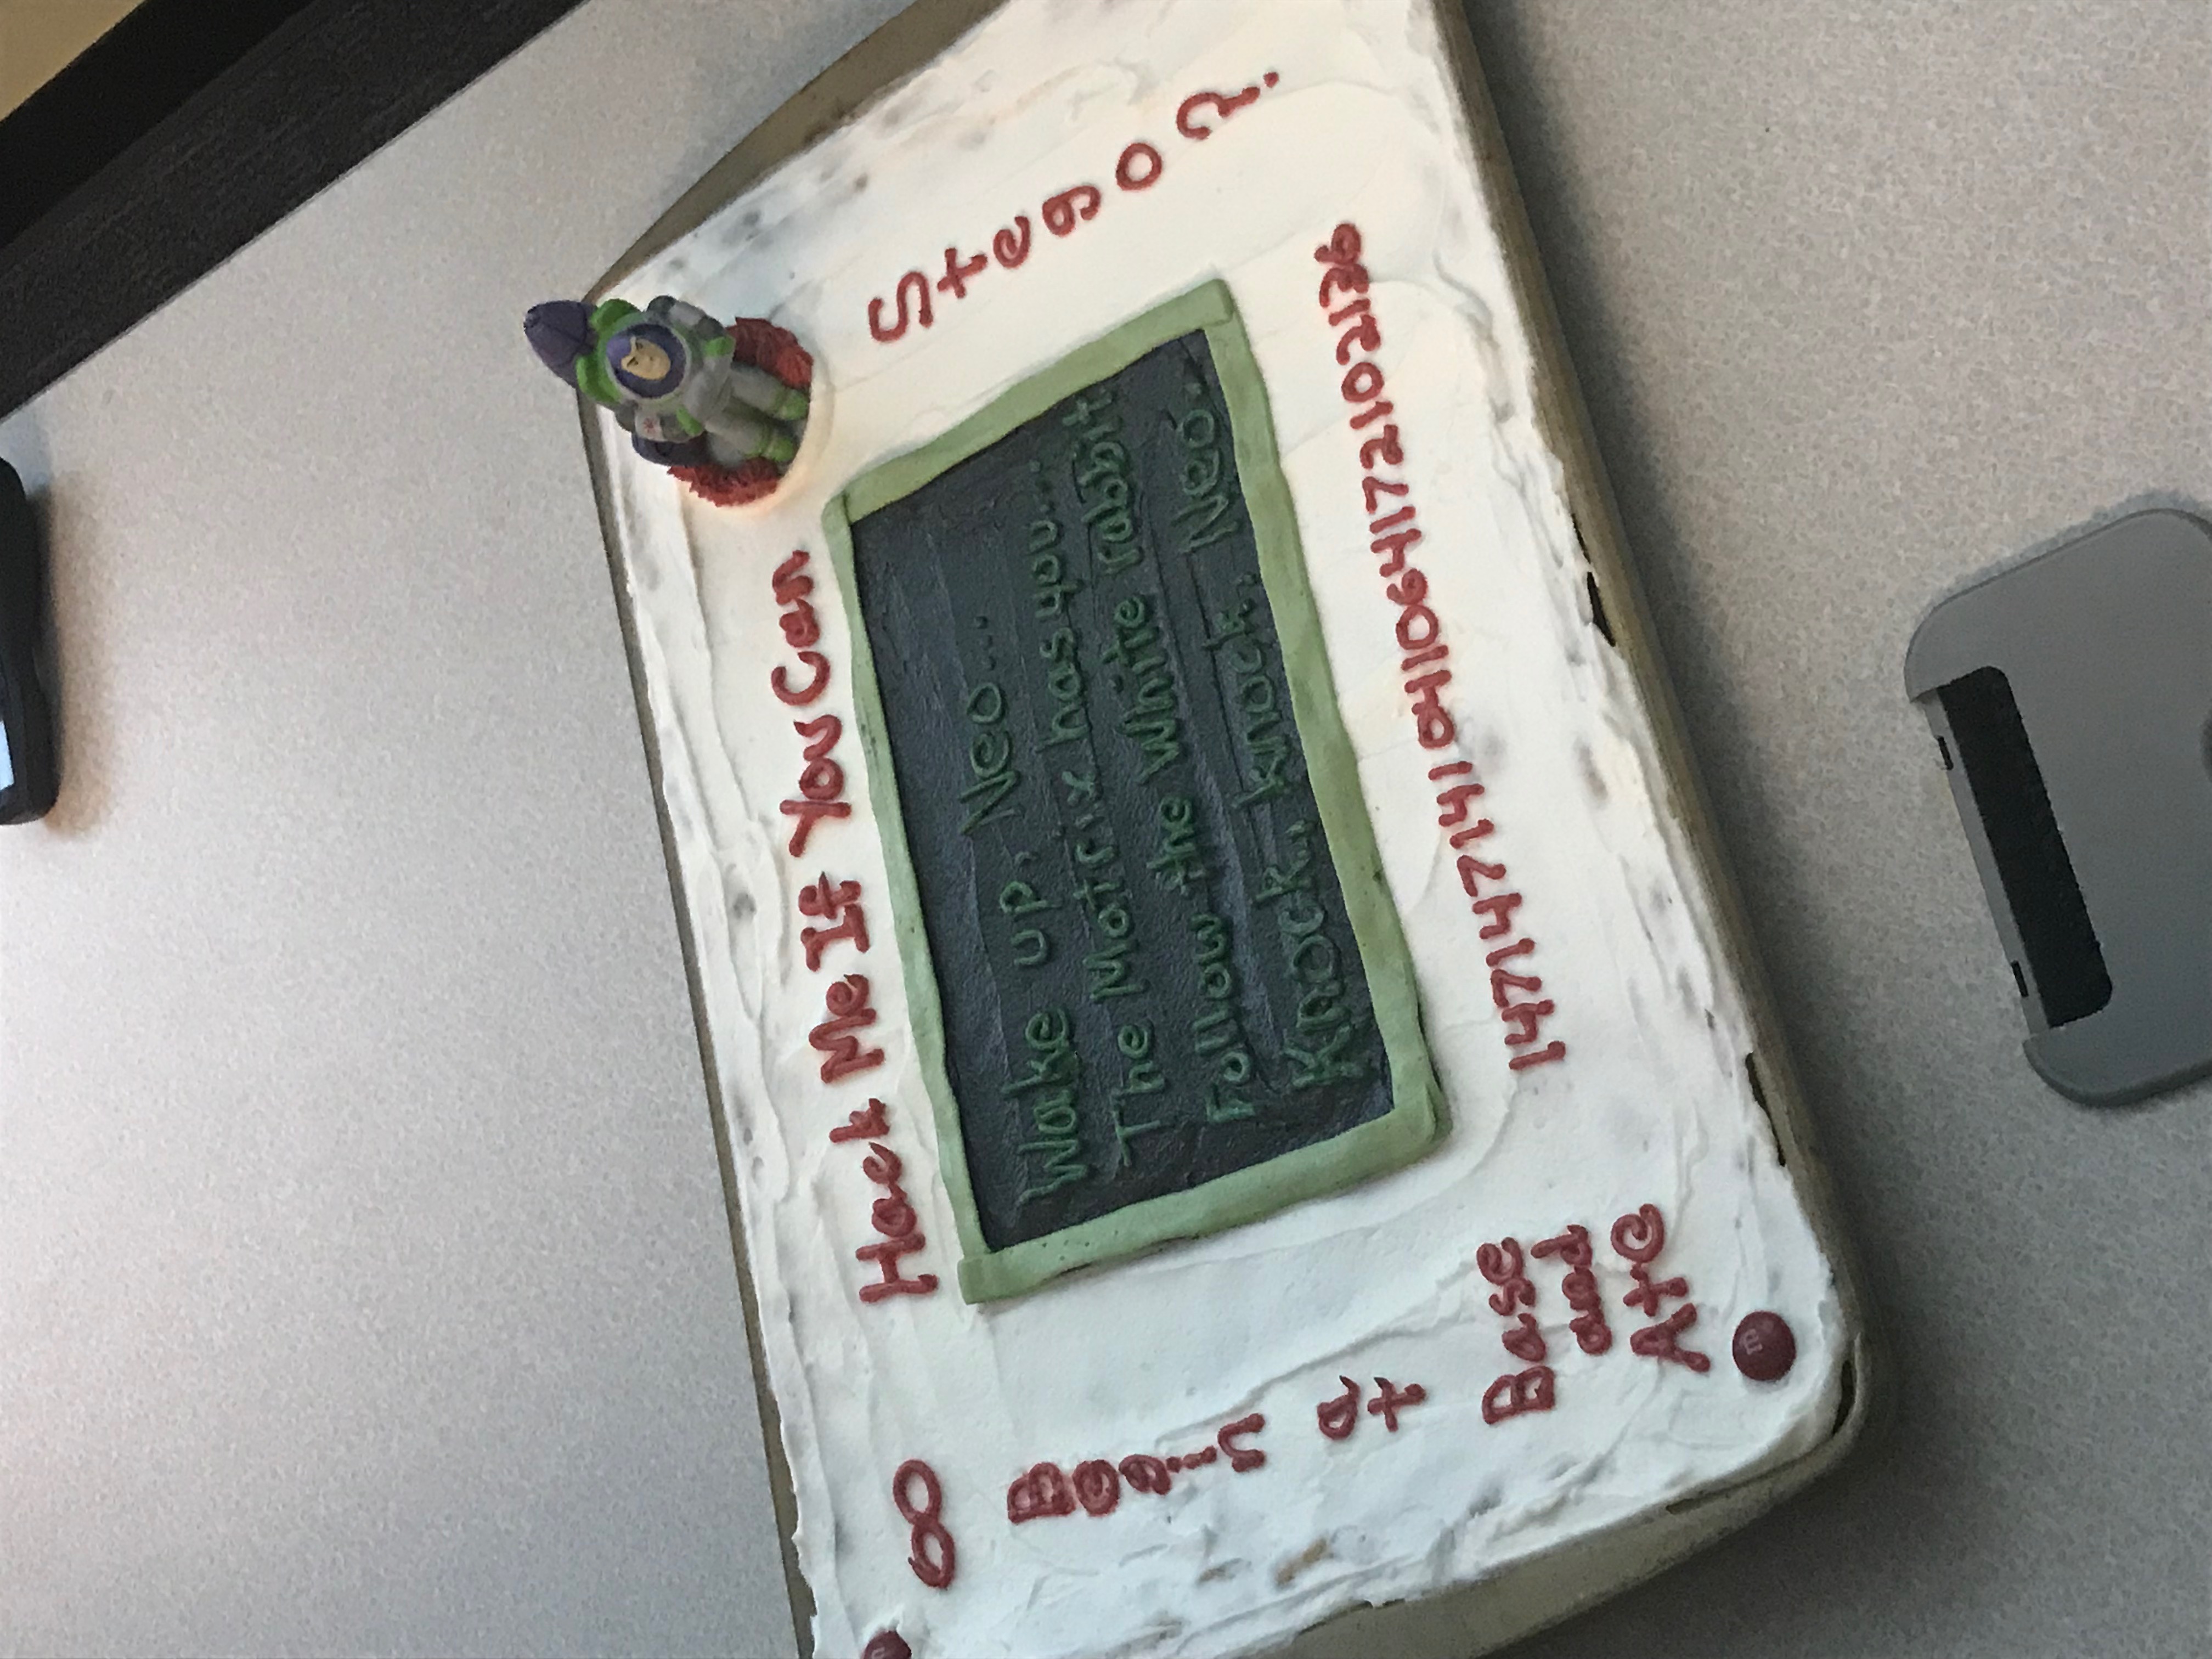 Hack Me If You Can
∞
Begin at
Base
and
Ate
Wake up, Neo...
The Matrix has you...
Follow the White rabbit
Knock, knock, Neo.
Stego?
1471471410411064172102136
m